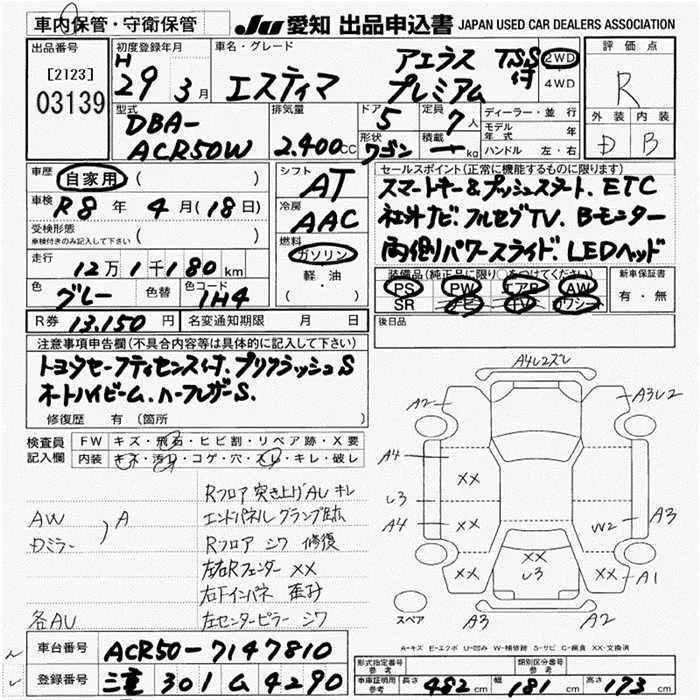 車内保管・守衛保管
JU 愛知 出品申込書 JAPAN USED CAR DEALERS ASSOCIATION
出品番号
[2123]
03139
初度登録年月
H 29 3月
車名・グレード
エスティマ アエラス プレミアム TSS付
2WD
4WD
評価点
R
外装 内装
D B
型式
DBA-
ACR50W
排気量
2.400cc
ドア 5
形状 ワゴン
定員 7人
積載 ー kg
ディーラー・並行
モデル年式 年
ハンドル 左・右
車歴 自家用 ( )
車検 R8年 4月(18日)
受検形態
車検付きのみ記入して下さい ( )
走行 12万1千180km
色 グレー 色替 色コード 1H4
R券 13,150円 名変通知期限 月 日
シフト
AT
冷房
AAC
燃料
ガソリン
軽・油
( )
セールスポイント(正常に機能するものに限ります)
スマートキー&プッシュスタート. ETC
社外ナビ. フルセグTV. Bモニター
両側パワースライド. LEDヘッド
装備品(純正品に限り○をつけてください)
PS PW エアB AW
SR ナビ TV カワシート
新車保証書
有・無
後日品
注意事項申告欄(不具合内容等は具体的に記入して下さい)
トヨタセーフティセンス付. プリクラッシュS
オートハイビーム. ハーフレザーS.
修復歴 有 (箇所
検査員記入欄
FW キズ・飛石・ヒビ割・リペア跡・X要
内装 キズ・汚れ・コゲ・穴・スレ・キレ・破レ
Rフロア 突き上げAU キレ
AW , A
エンドパネル クランプ跡
カミラー
Rフロア シワ 修復
左右Rフェンター XX
右Fインパネ 歪み
各AU
左センターピラー シワ
A4U2ズレ
A2
A3U2
A4
XX
U3
A4
XX
W2
A3
XX
XX
U3
XX
A1
スペア
A3
A2
A-キズ E-エクボ U-凹み W-補修跡 S-サビ C-腐食 XX-交換済
車台番号 ACR50-7147810
登録番号 三重 301 ム 4290
形式指定番号 参考
類別区分番号 参考
車庫証明用 参考 長さ 482cm 幅 181cm 高さ 173cm